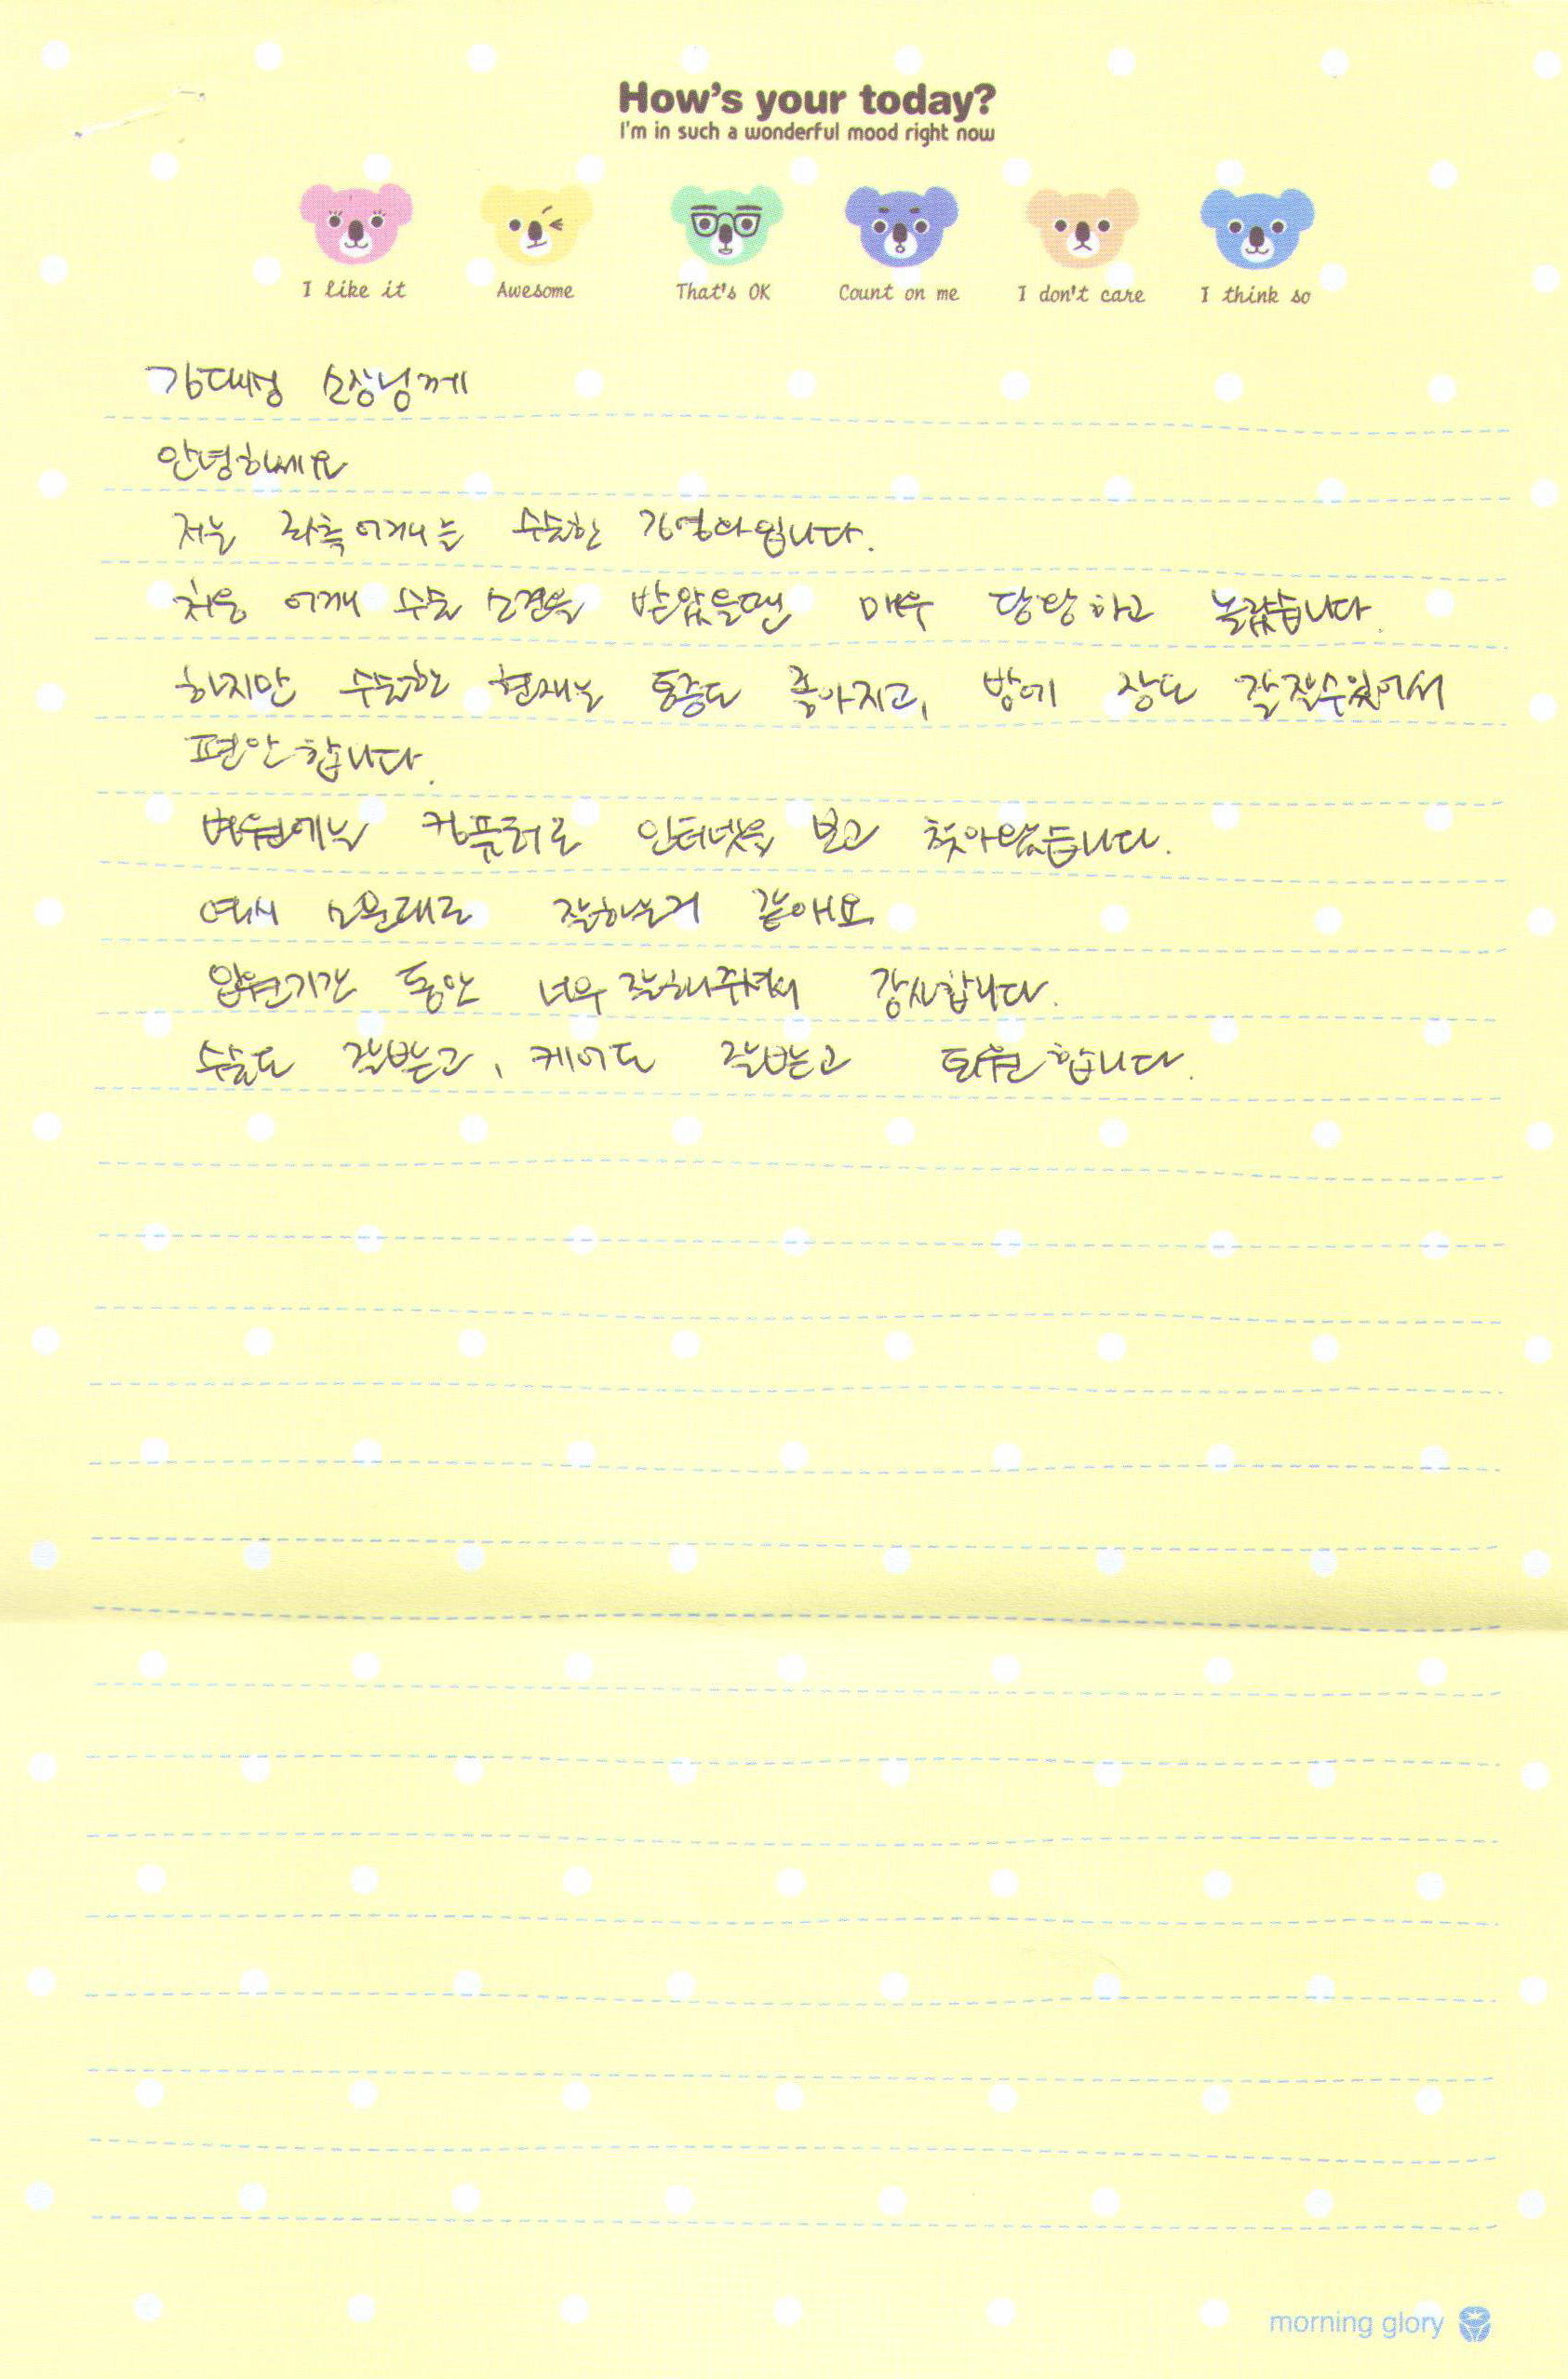 How's your today?
I'm in such a wonderful mood right now
I like it Awesome That's OK Count on me I don't care I think so
김대성 소장님께
안녕하세요
저는 좌측어깨를 수술한 김영아입니다.
처음 어깨 수술 소견을 받았을땐 매우 당황하고 놀랐습니다.
하지만 수술한 현재는 통증도 좋아지고, 밤에 잠도 잘잘수있어서
편안합니다.
병원에는 컴퓨터로 인터넷을 보고 찾아왔습니다.
역시 소문대로 잘하는거 같애요
입원기간 동안 너무 잘해주셔서 감사합니다.
수술도 잘받고, 케어도 잘받고 퇴원합니다.
morning glory